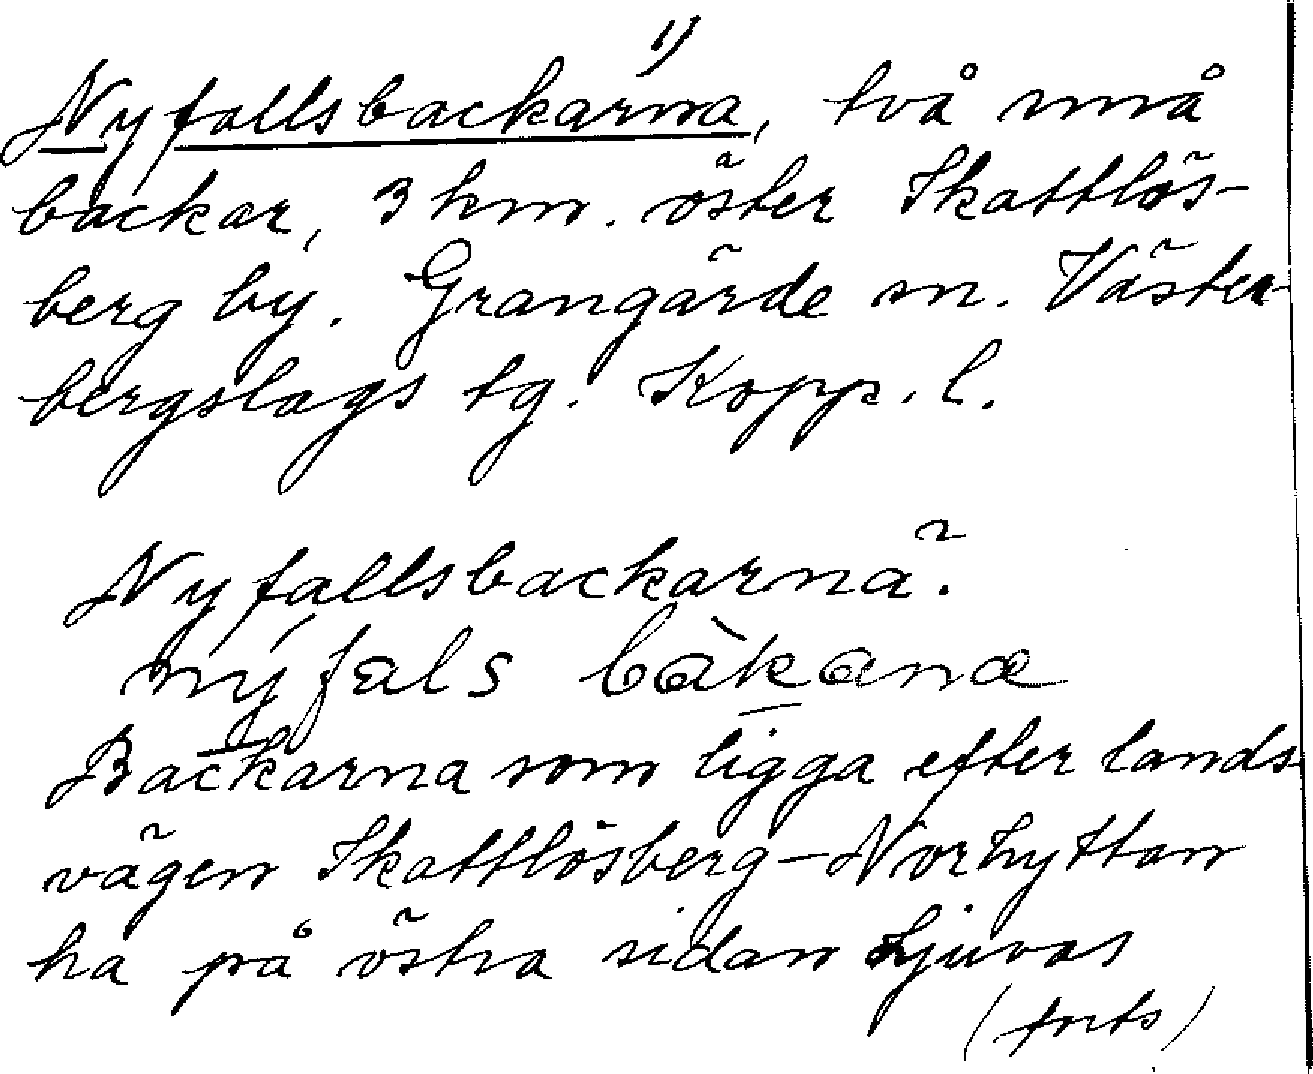 1)
Nyfallsbackarna, två små
backar, 3 km. öster Skattlös-
berg by. Grangärde sn. Väster-
bergslags tg. Kopp. l.
Nyfallsbackarna.
nýfals bàkana
Backarna som ligga efter lands-
vägen Skattlösberg-Norhyttan
ha på östra sidan
(forts)